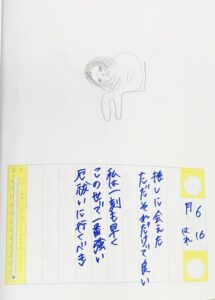 6
月
16
はれ
推しに会えた
ただそれだけで良い
私は一刻も早く
この世で一番強い
厄祓いに行くべき